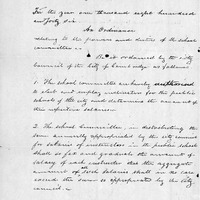 For the year one thousand eight hundred
and forty six.
An Ordinance
relating to the powers and duties of the school
committee —
Be it ordained by the City
Council of the City of Cambridge as follows
1. The school committee are hereby authorized
to elect and employ instructors for the public
schools of the city and determine the amount of
their respective salaries.
2. The school committee, in distributing the
sum annually appropriated by the city council
for salaries of instructors in the public schools
shall so fix and graduate the amount of
salary of each instructor that the aggregate
amount of such salaries shall in no case
exceed the sum so appropriated by the city
council.